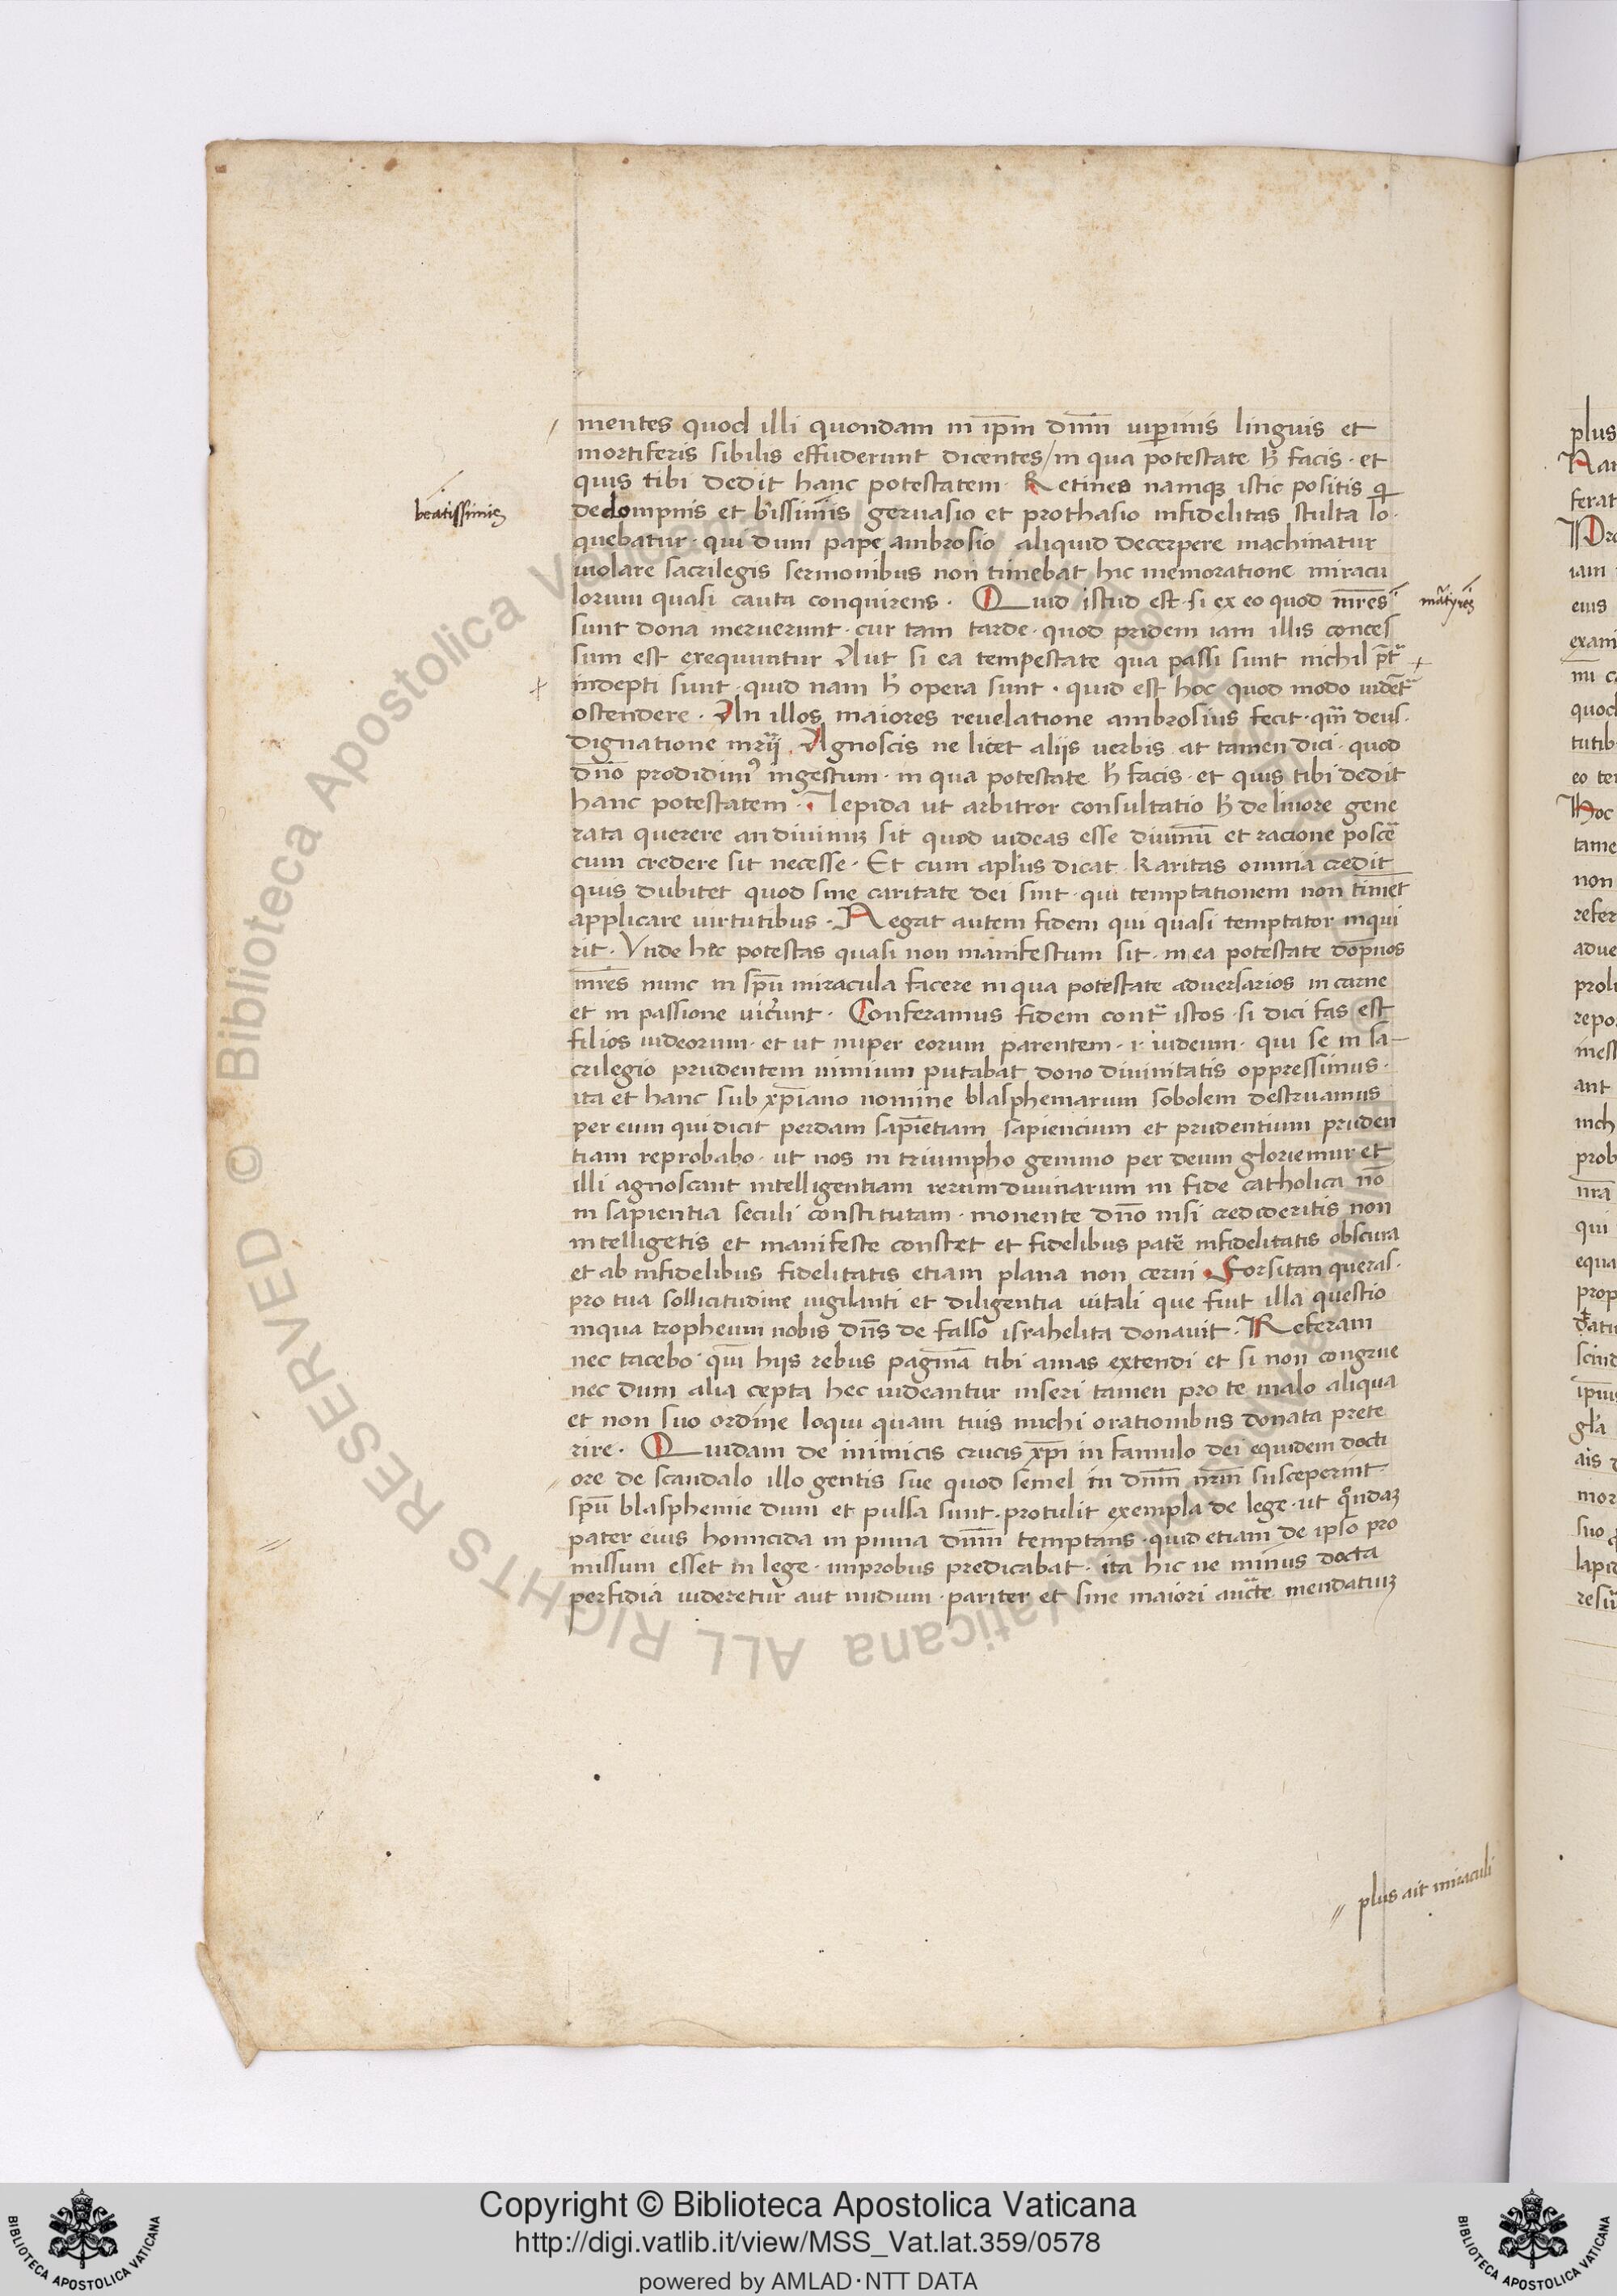 mentes quod illi quondam in ip̄m dn̄m uiperinis linguis et
mortiferis sibilis effuderunt dicentes / in qua potestate h̄ facis · et
quis tibi dedit hanc potestatem · Retines namqꝫ istic positis q̄
de dompnis et bi̅ssimis geruasio et prothasio infidelitas stulta lo·
beatissimis
quebatur · qui dum pape ambrosio aliquid decerpere machinatur
uiolare sacrilegis sermonibus non timebat hic memoratione miracu
lorum quasi cauta conquirens · Quid istud est · si ex eo quod mr̄es
martyres
sunt dona meruerunt · cur tam tarde · quod pridem iam illis conces
sum est exequuntur Aut si ea tempestate qua passi sunt nichil
indepti sunt · quid nam h̄ opera sunt · quid est hoc quod modo uident᷑
ostendere · An illos maiores reuelatione ambrosius fecit · qm̄ deus ·
dignatione Agnoscis ne licet alijs uerbis at tamen dici · quod
dn̄o prodidimꝰ ingestum · in qua potestate h̄ facis · et quis tibi dedit
hanc potestatem · Tepida ut arbitror consultatio h̄ de liuore gene
rata querere an diuinuꝫ sit quod uideas esse diuinū et racione
cum credere sit necesse · Et cum aplus dicat · karitas omnia credit
quis dubitet quod sine caritate dei sint · qui temptationem non timet
applicare uirtutibus · Negat autem fidem qui quasi temptator inqui
rit · Unde hec potestas quasi non manifestum sit · in ea potestate dop̄nos
mr̄es nunc in spū miracula facere in qua potestate aduersarios in carne
et in passione uicerunt · Conferamus fidem contr᷑ istos · si dici fas est
filios iudeorum · et ut nuper eorum parentem · i · iudeum · qui se in sa-
crilegio prudentem nimium putabat dono diuinitatis oppressimus ·
ita et hanc sub xp̄iano nomine blasphemarum sobolem destruamus
per eum qui dicit perdam sapiētiam sapiencium et prudentium pruden
tiam reprobabo · ut nos in triumpho gemino per deum gloriemur et
illi agnoscant intelligentiam rerum diuinarum in fide catholica nō
in sapientia seculi constitutam · monente dn̄o nisi credideritis non
intelligetis et manifeste constet et fidelibus patē infidelitatis obscura
et ab infidelibus fidelitatis etiam plana non cerni · Forsitan queras ·
pro tua sollicitudine uigilanti et diligentia uitali que fuit illa questio
inqua tropheum nobis dn̄s de falso israhelita donauit · Referam
nec tacebo · qm̄ hijs rebus paginā tibi amas extendi et si non congrue
nec dum alia cepta hec uideantur inseri tamen pro te malo aliqua
et non suo ordine loqui quam tuis michi orationibus donata prete
rire · Quidam de inimicis crucis xp̄i in famulo dei equidem docti
ore de scandalo illo gentis sue quod semel in dn̄m nr̄m susceperint ·
spū blasphemie dum et pulsa sunt · protulit exempla de lege · ut qͦndaꝫ
pater eius homicida in pinna dn̄m temptans · quid etiam de ipso pro
missum esset in lege · improbus predicabat · ita hic ne minus docta
perfidia uideretur aut nudum · pariter et sine maiori mendatiuꝫ
plus ait miraculi
plus
ferat
iam
eius
exami
quod
tutib
Hoc
tame
non
refer
adue
ant
prob
qui
equa
prop
suo
Copyright © Biblioteca Apostolica Vaticana
http://digi.vatlib.it/view/MSS_Vat.lat.359/0578
powered by AMLAD·NTT DATA
BIBLIOTECA APOSTOLICA VATICANA
BIBLIOTECA APOSTOLICA VATICANA
© Biblioteca Apostolica Vaticana ALL RIGHTS RESERVED